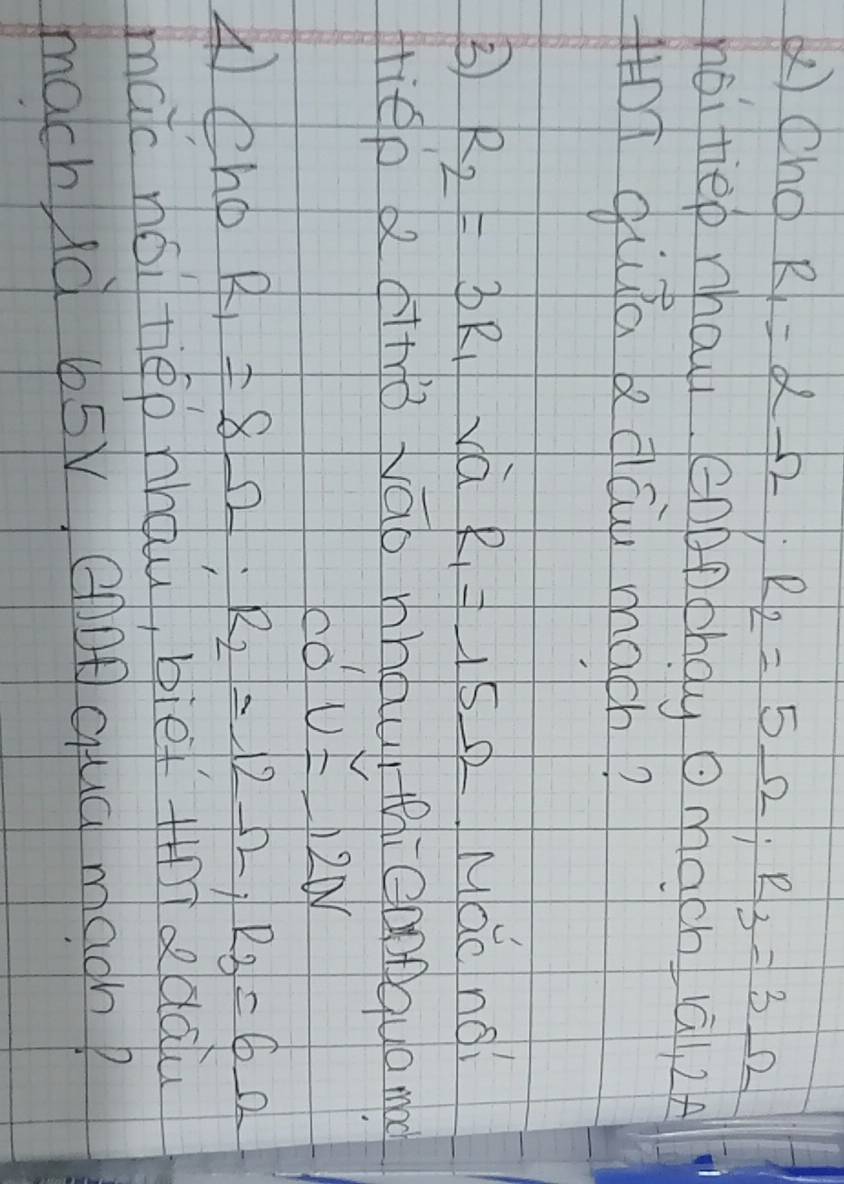 2) Cho R₁ = 2Ω ; R₂ = 5Ω ; R₃ = 3Ω
nối tiếp nhau. CĐDĐ chạy mạch là 1,2A
HĐT giữa 2 đầu mạch ?
3) R₂ = 3R₁ và R₁ = 15Ω. Mắc nối
tiếp 2 đtrở vào nhau, thì CĐDĐ qua
có U = 12V
4) Cho R₁ = 8Ω ; R₂ = 12Ω ; R₃ = 6Ω
mắc nối tiếp nhau, biết HĐT 2 đầu
mạch là 65V. CĐDĐ qua mạch ?